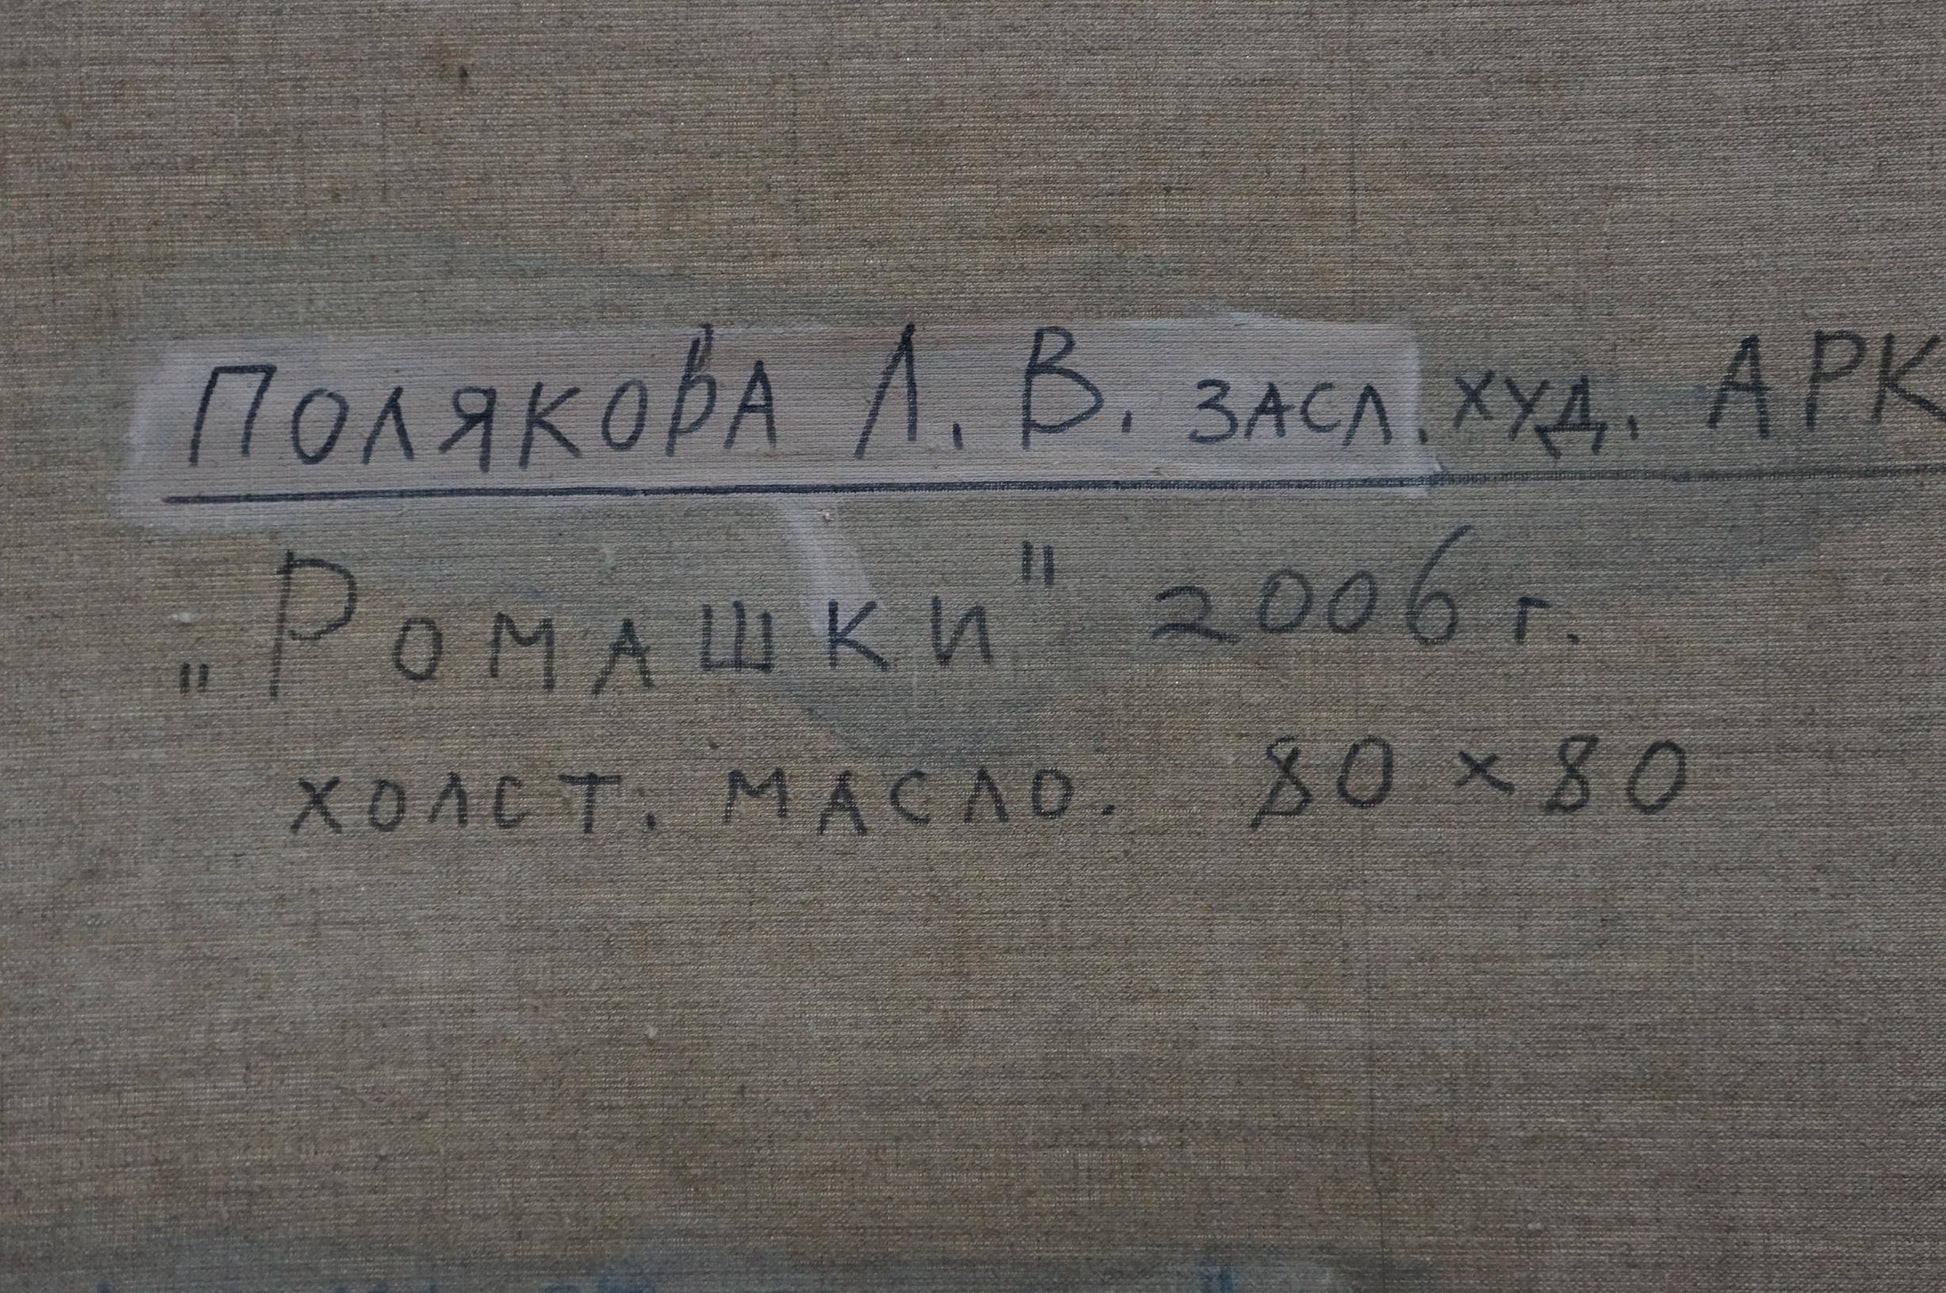 ПОЛЯКОВА Л. В. ЗАСЛ. ХУД. АРК
„РОМАШКИ" 2006 г.
ХОЛСТ. МАСЛО. 80 × 80